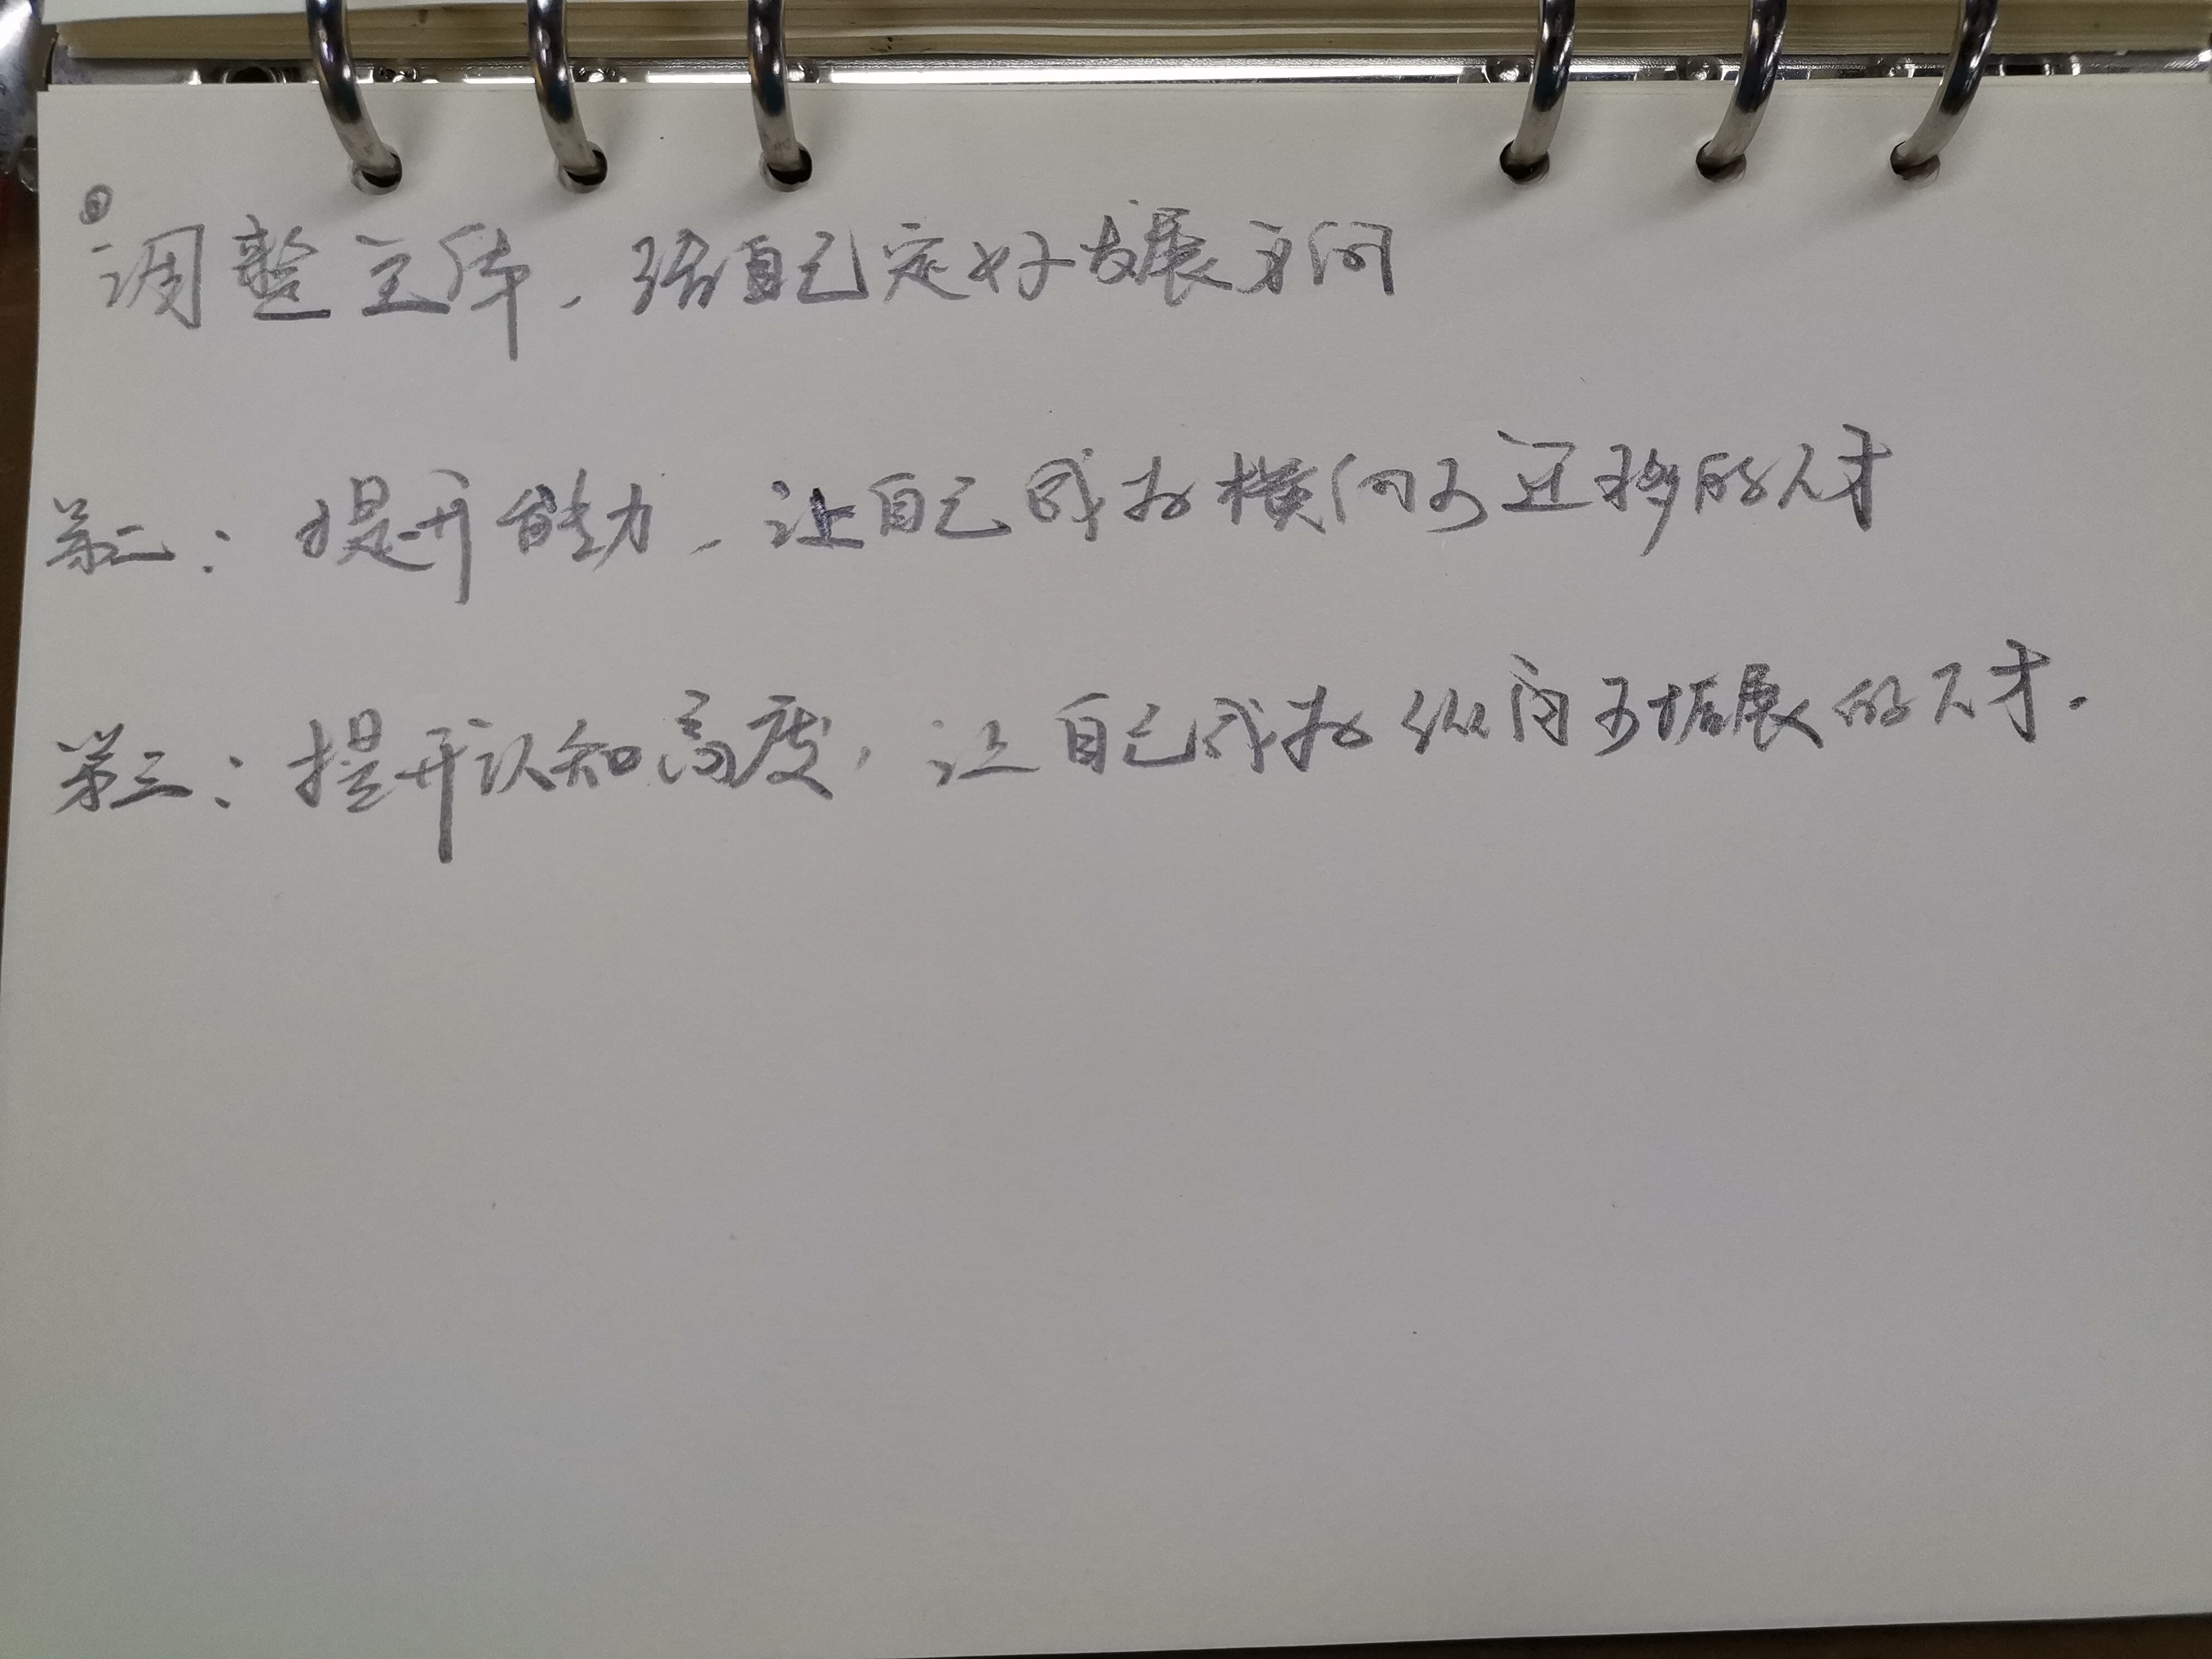 调整主体，给自己定好发展方向
第二：提升能力，让自己成为横向可迁移的人才
第三：提升认知高度，让自己成为纵向可拓展的人才.